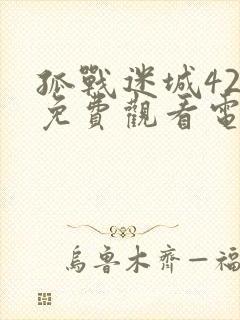 孤戰迷城42
免費觀看電
烏魯木齊—福